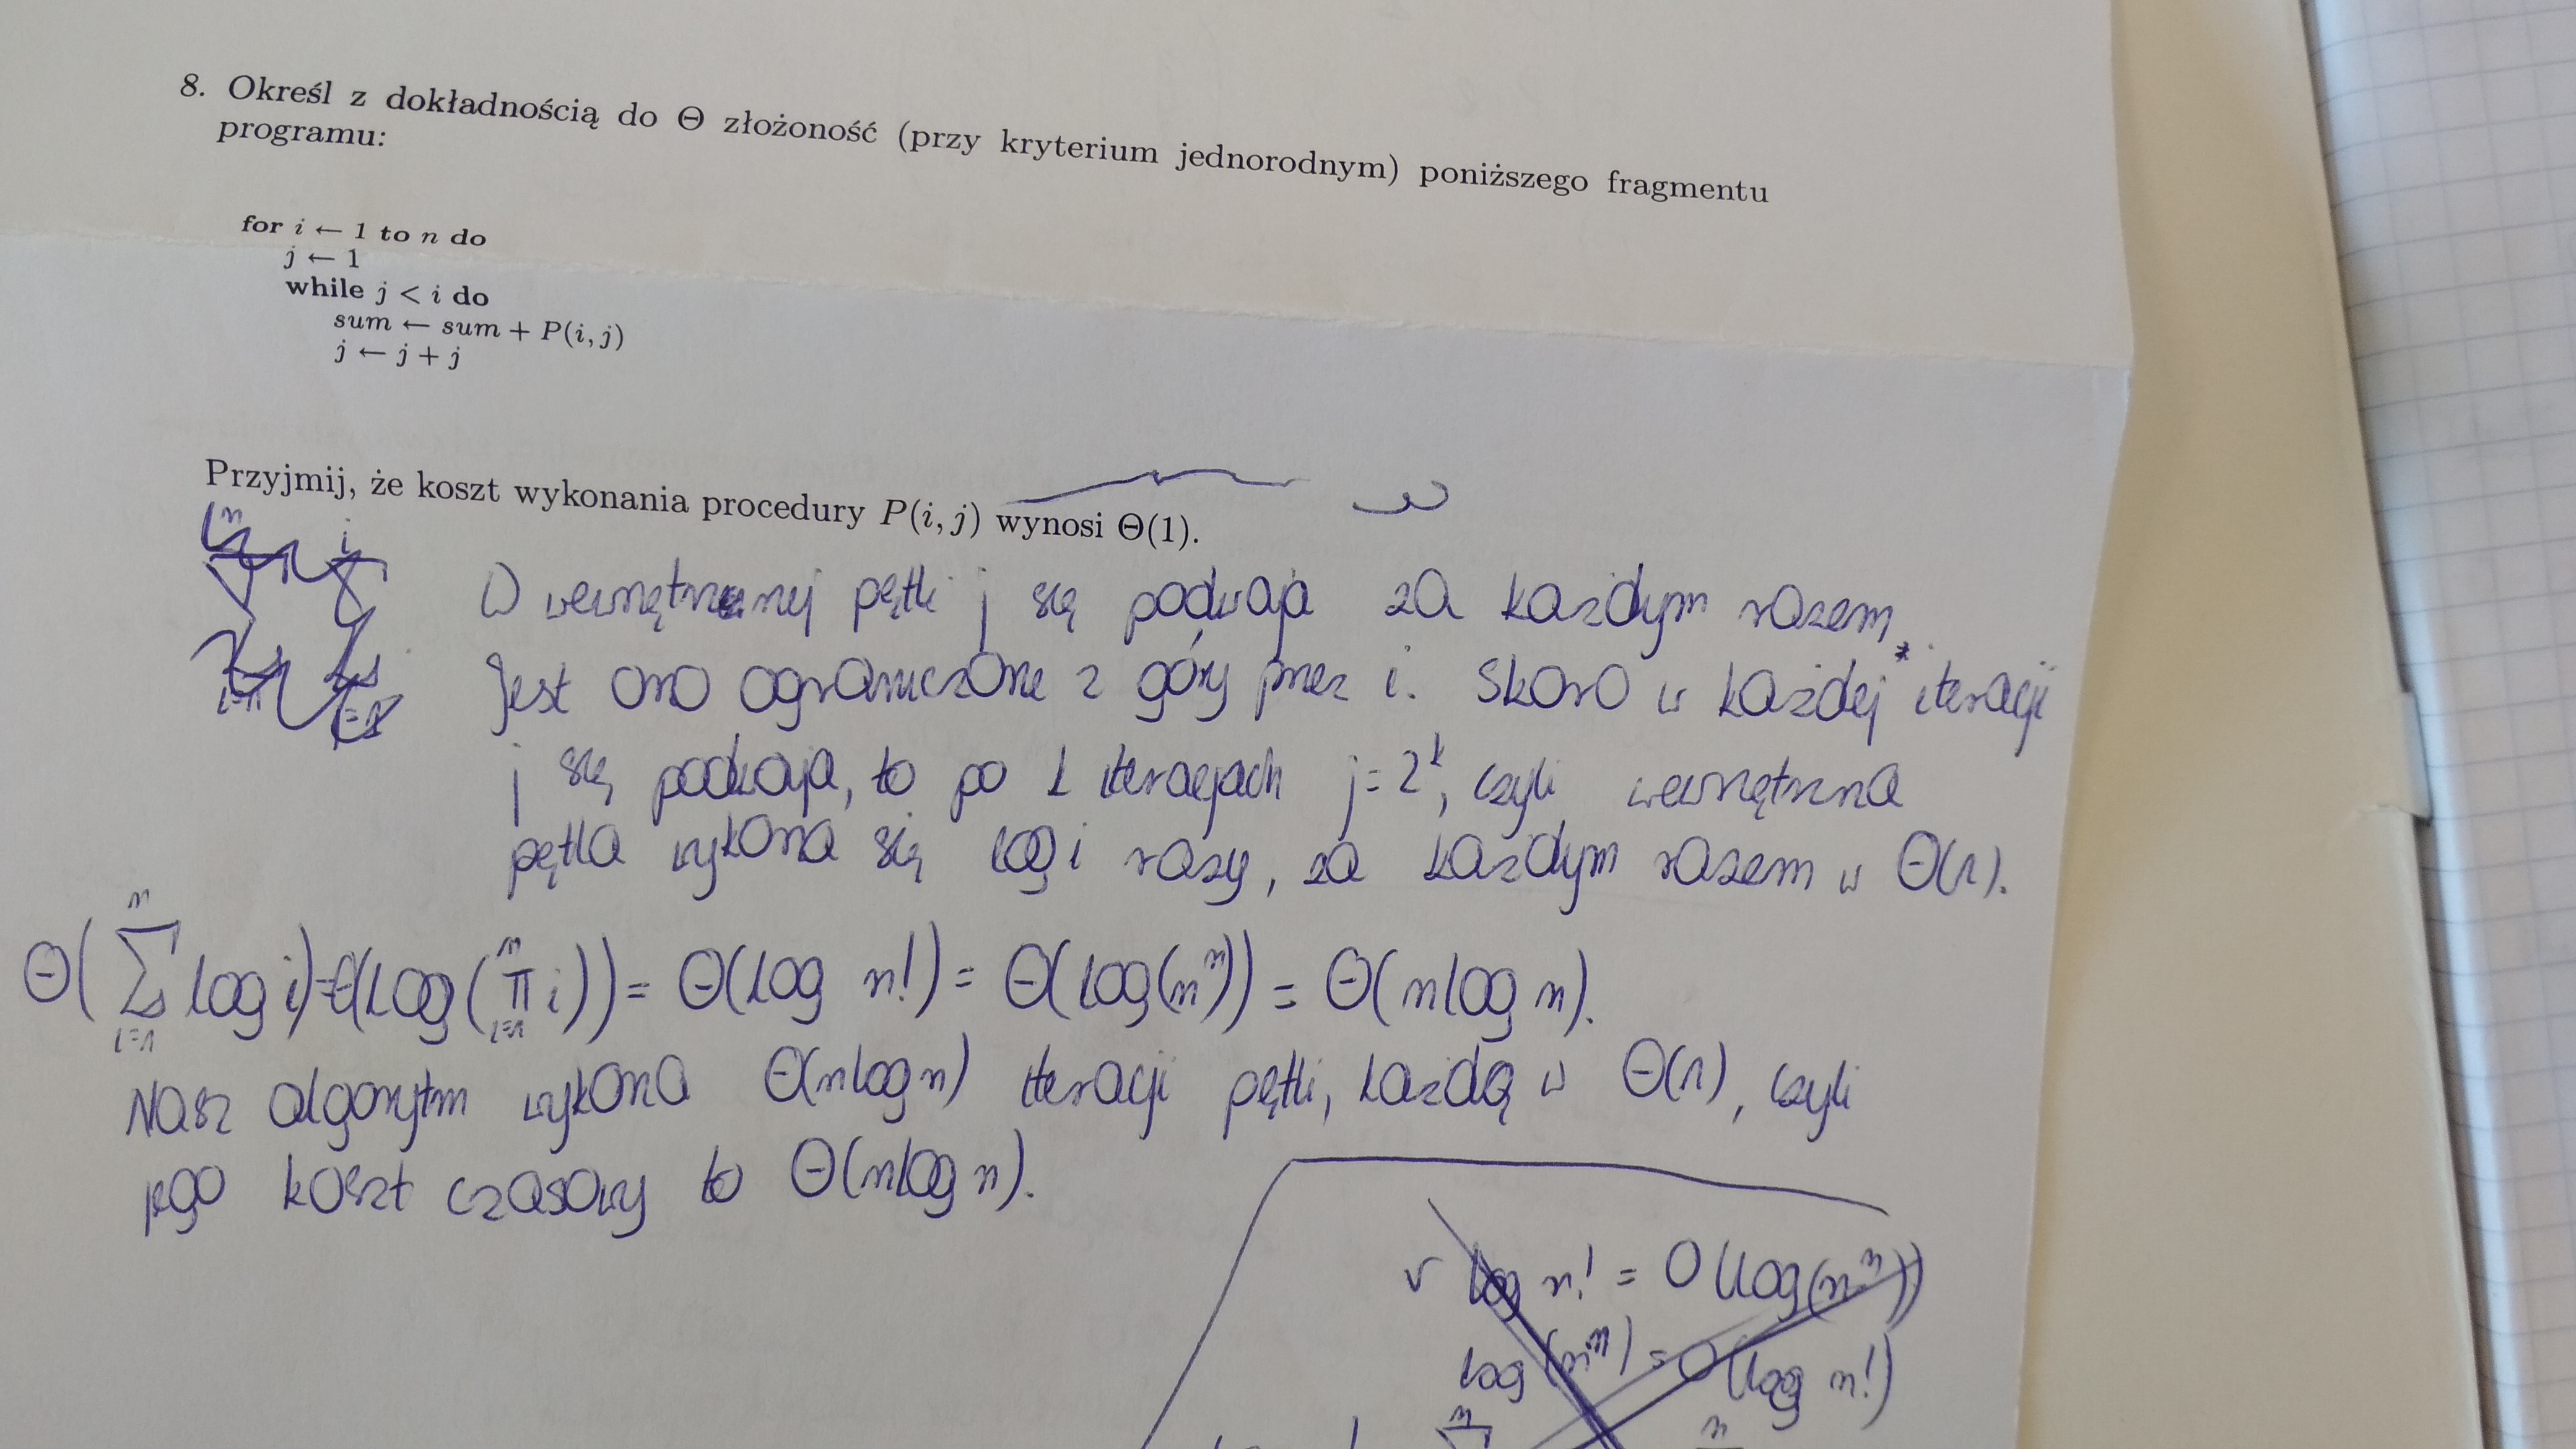 8. Określ z dokładnością do Θ złożoność (przy kryterium jednorodnym) poniższego fragmentu
programu:
for i ← 1 to n do
j ← 1
while j < i do
sum ← sum + P(i, j)
j ← j + j
Przyjmij, że koszt wykonania procedury P(i, j) wynosi Θ(1).
W wewnętrznej pętli j się podwaja za każdym razem.
Jest ono ograniczone z góry przez i. Skoro w każdej* iteracji
j się podwaja, to po k iteracjach j = 2^k, czyli wewnętrzna
pętla wykona się log i razy, za każdym razem w Θ(1).
Θ(∑_{i=1}^{n} log i) = Θ(log(π_{i=1}^{n} i)) = Θ(log n!) = Θ(log(n^n)) = Θ(n log n).
Nasz algorytm wykona Θ(n log n) iteracji pętli, każdą w Θ(1), czyli
jego koszt czasowy to Θ(n log n).
log n! = O(log(n^n))
log(n^n) = O(log n!)